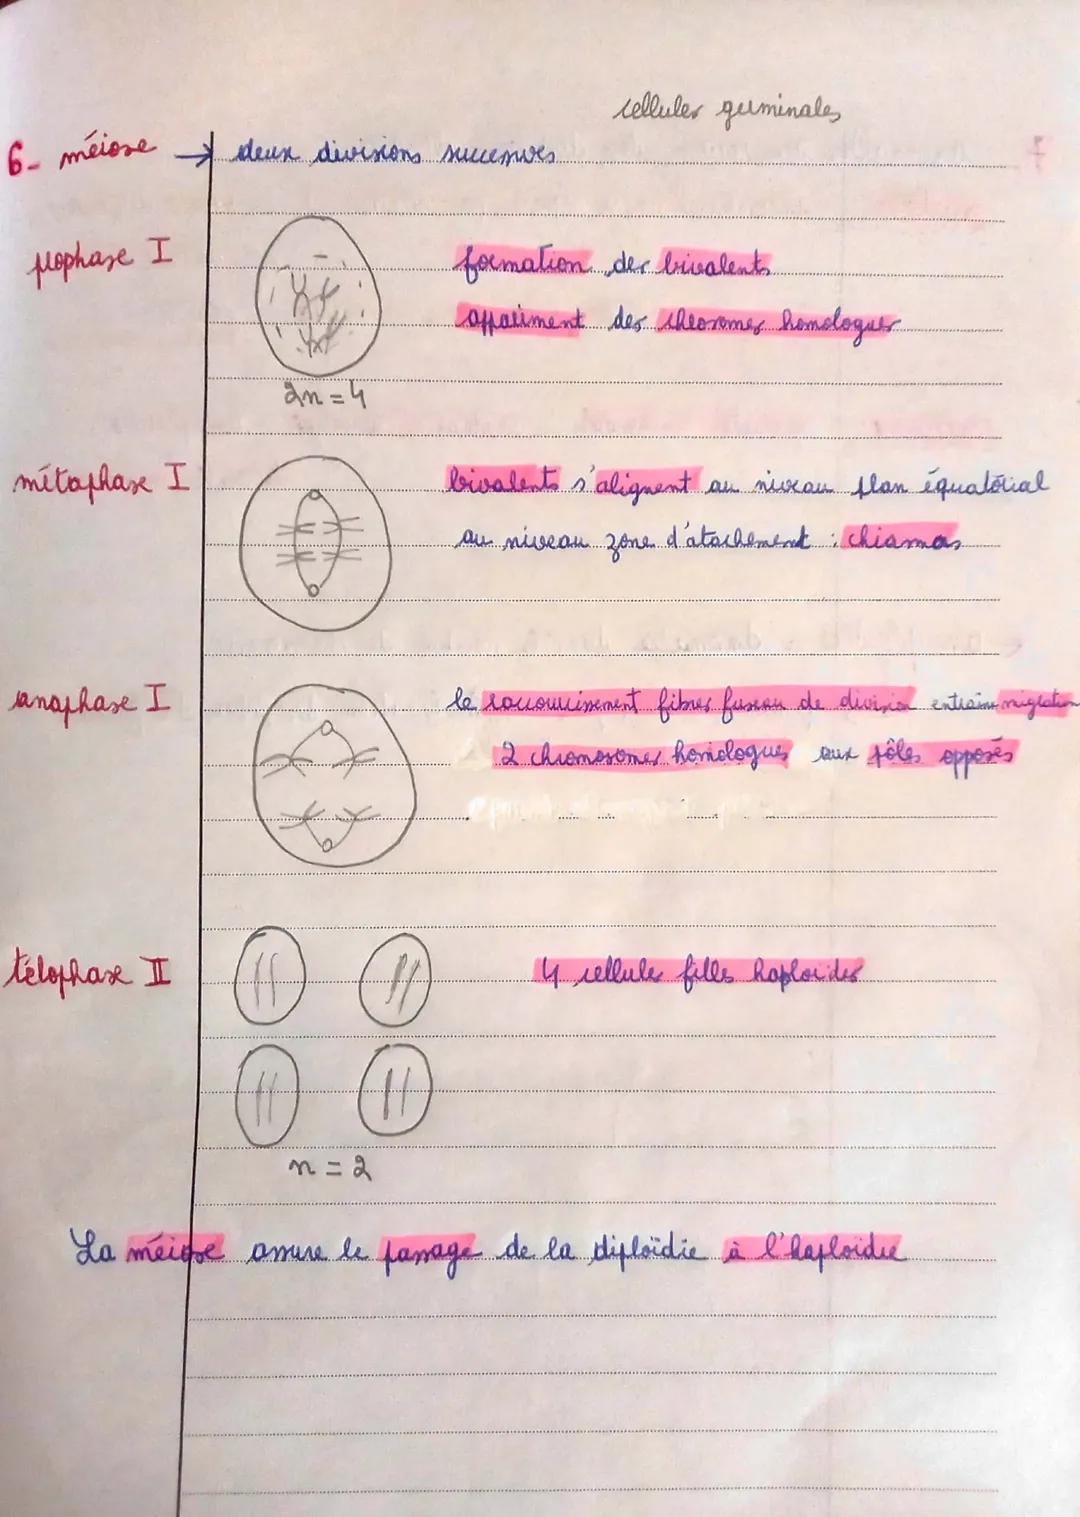 cellules germinales
6- méiose → deux divisions succesives
pophase I
formation des bivalents
appariment des chrosomes homologues
2n = 4
métaphase I
bivalents s'alignent au niveau plan équatorial
au niveau zone d'atachement : chiasmas
anaphase I
le raccourcissement fibres fuseau de division entraine migration
2 chromosomes homologues aux pôles opposés
télophase II
4 cellules filles haploïdes
n = 2
La méiose assure le passage de la diploïdie à l'haploïdie